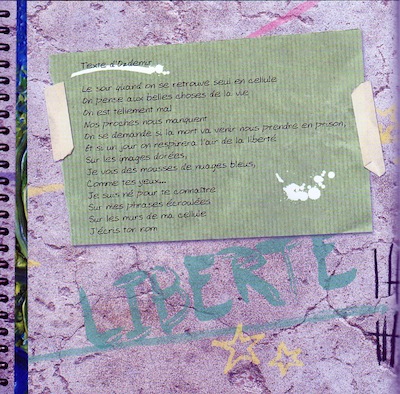 Texte d'Ozdemir
Le soir quand on se retrouve seul en cellule
On pense aux belles choses de la vie
On est tellement mal
Nos proches nous manquent
On se demande si la mort va venir nous prendre en prison,
Et si un jour on respirera l'air de la liberté
Sur les images dorées,
Je vois des mousses de nuages bleus,
Comme tes yeux...
Je suis né pour te connaître
Sur mes phrases écroulées
Sur les murs de ma cellule
J'écris ton nom
LIBERTE